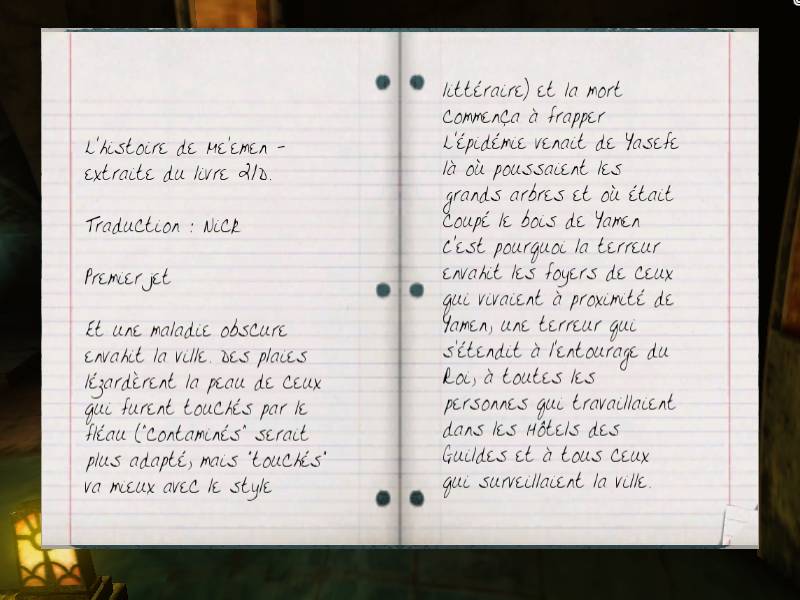 L'histoire de Me'emen -
extraite du livre 2/D.
Traduction : Nick
Premier jet
Et une maladie obscure
envahit la ville. Des plaies
lézardèrent la peau de ceux
qui furent touchés par le
fléau ("contaminés" serait
plus adapté, mais "touchés"
va mieux avec le style
littéraire) et la mort
commença à frapper
L'épidémie venait de Yasefe
là où poussaient les
grands arbres et où était
coupé le bois de Yamen
c'est pourquoi la terreur
envahit les foyers de ceux
qui vivaient à proximité de
Yamen, une terreur qui
s'étendit à l'entourage du
Roi, à toutes les
personnes qui travaillaient
dans les Hôtels des
Guildes et à tous ceux
qui surveillaient la ville.